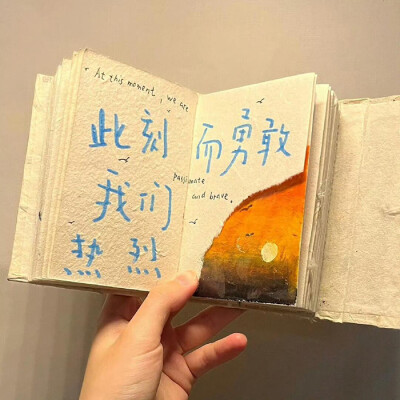 At this moment, we are
此刻
我们
热烈
而勇敢
passionate
and brave.